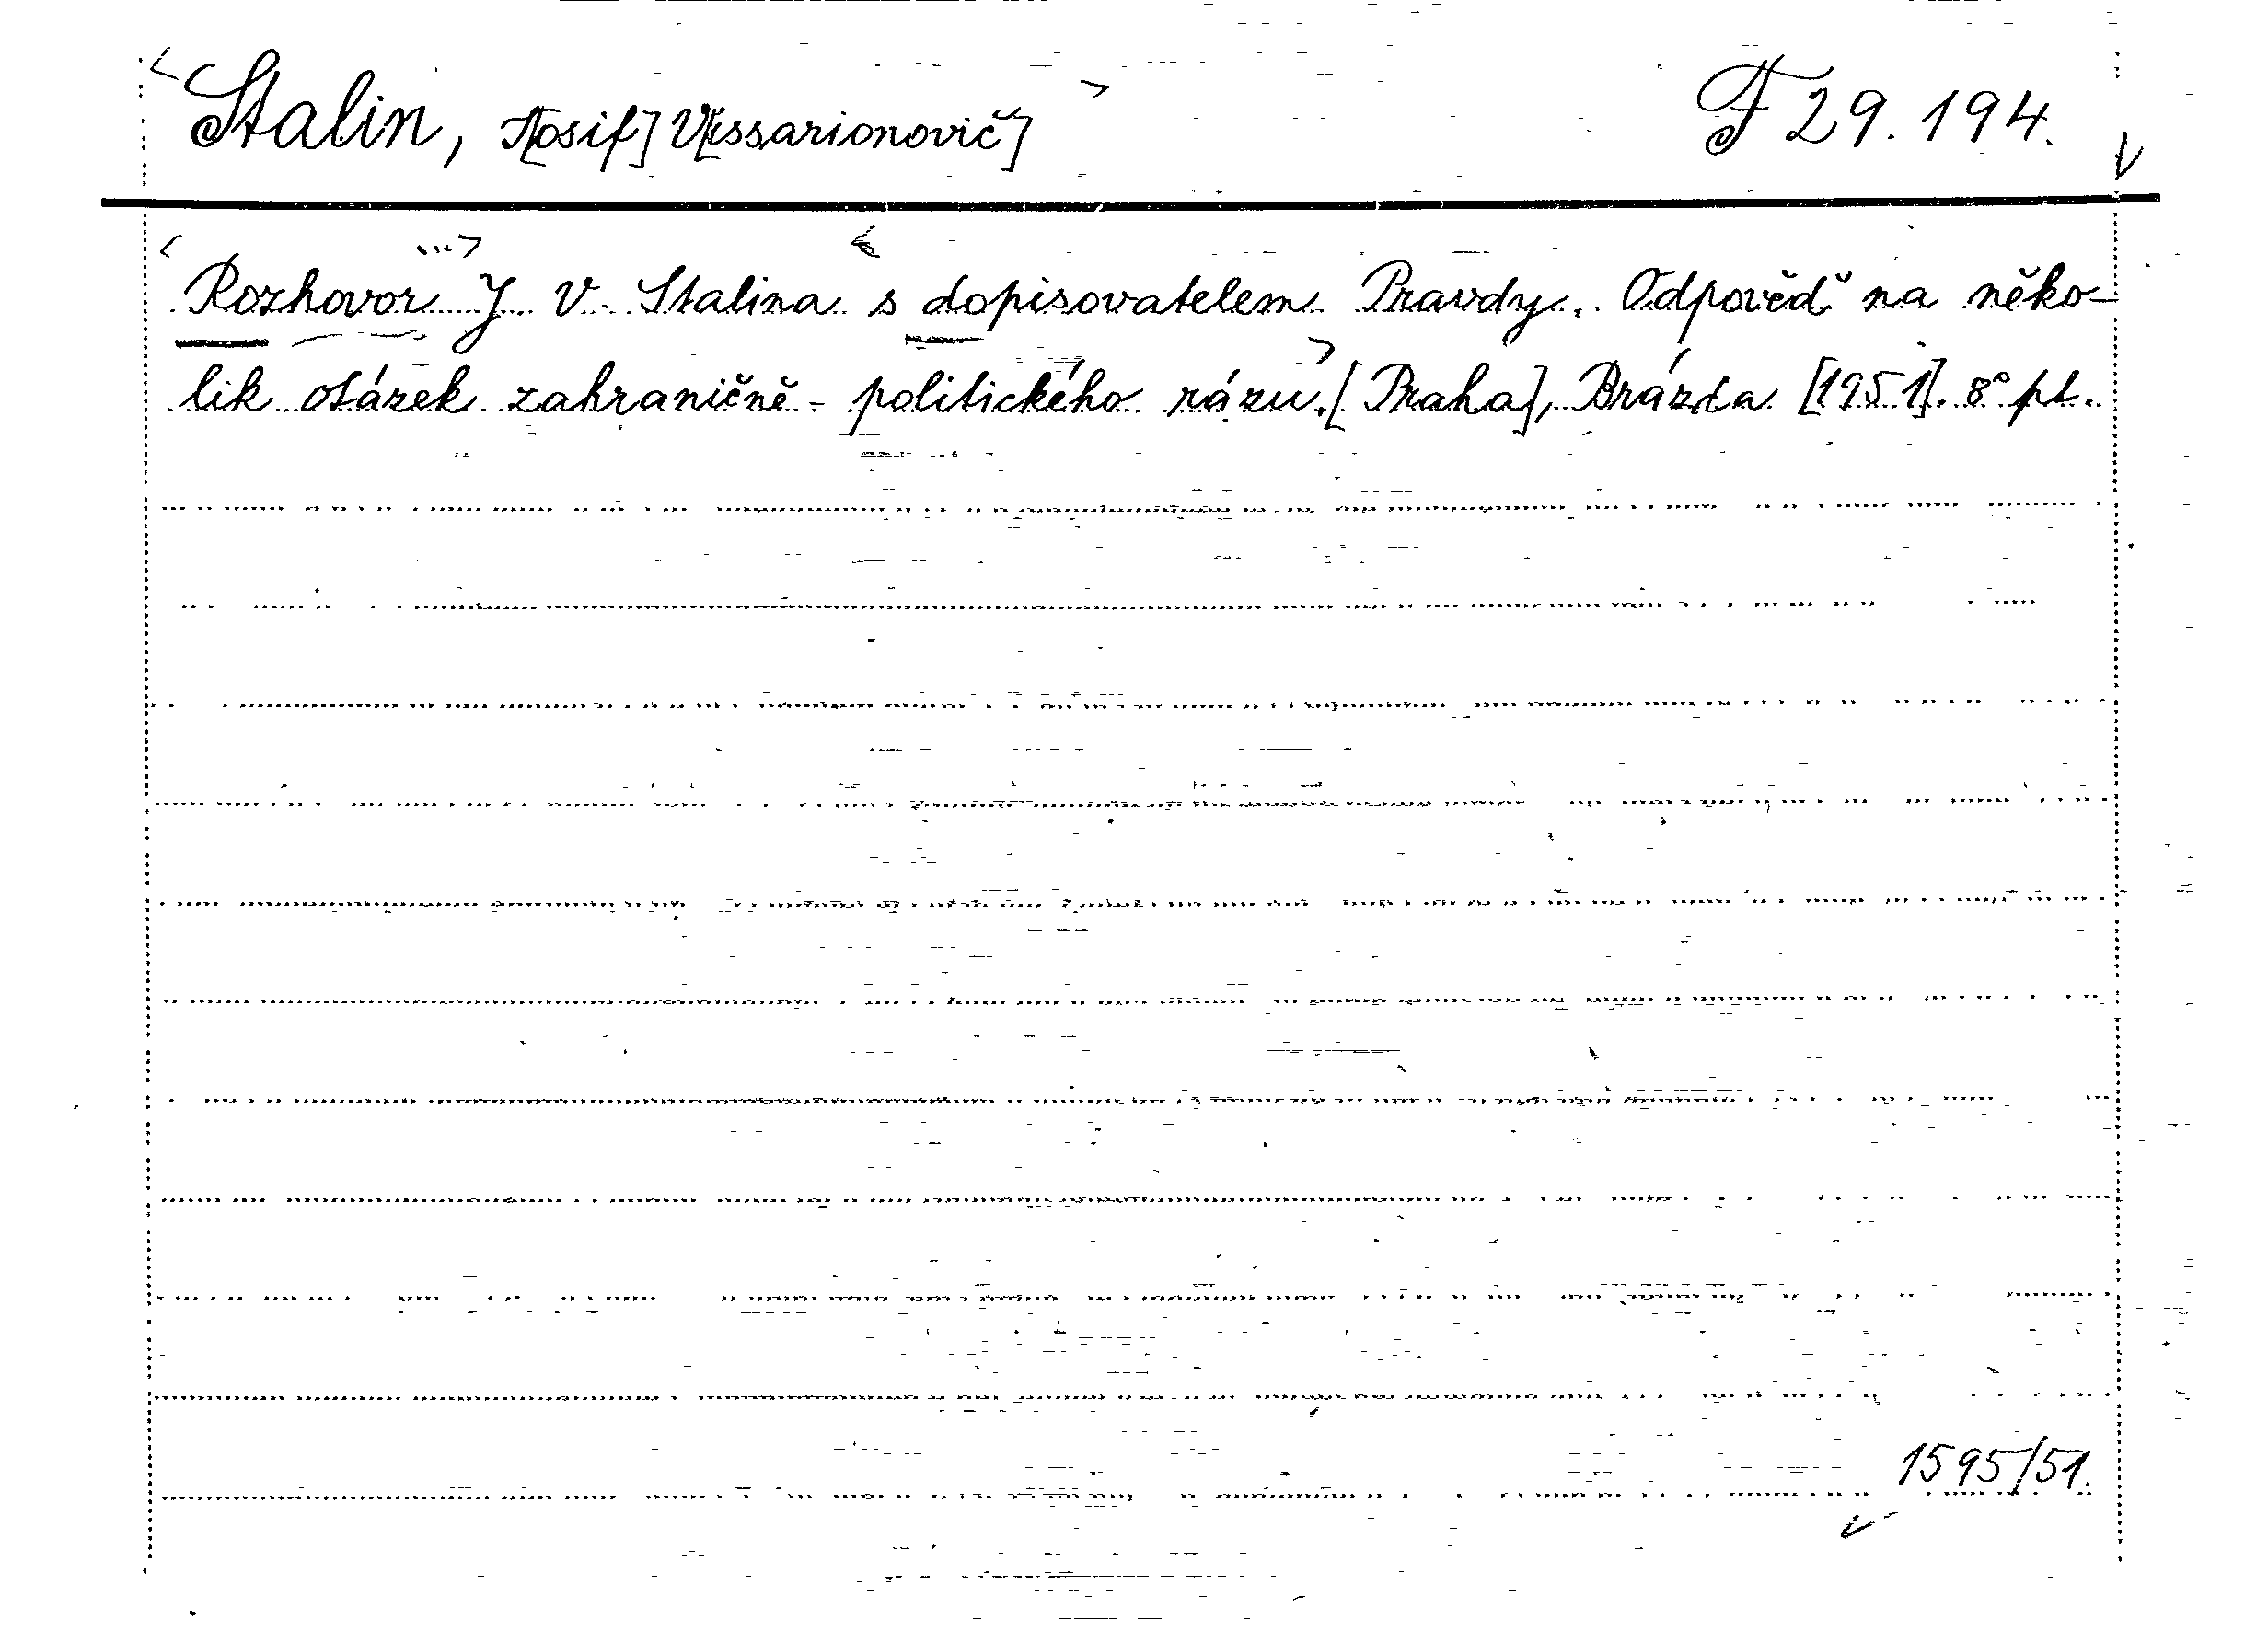 Stalin, J[osif] V[issarionovič] F 29.194.
Rozhovor J. V. Stalina s dopisovatelem Pravdy. Odpověď na něko-
lik otázek zahraničně-politického rázu. [Praha], Brázda [1951]. 8° pl.
1595/51.